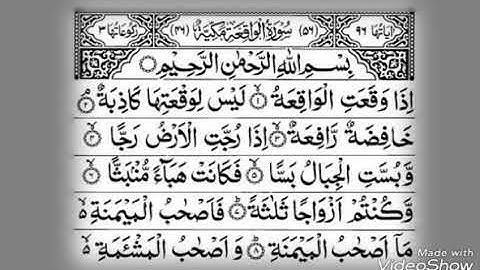 اٰیاتها ۹۶ (۵۶) سُوْرَةُ الْوَاقِعَةِ مَكِّیَّةٌ (۴۶) رکوعاتها ۳
بِسْمِ اللهِ الرَّحْمٰنِ الرَّحِیْمِ
اِذَا وَقَعَتِ الْوَاقِعَةُ ۙ﴿۱﴾ لَیْسَ لِوَقْعَتِهَا كَاذِبَةٌ ۘ﴿۲﴾
خَافِضَةٌ رَّافِعَةٌ ۙ﴿۳﴾ اِذَا رُجَّتِ الْاَرْضُ رَجًّا ۙ﴿۴﴾
وَّ بُسَّتِ الْجِبَالُ بَسًّا ۙ﴿۵﴾ فَكَانَتْ هَبَآءً مُّنْۢبَثًّا ۙ﴿۶﴾
وَّ كُنْتُمْ اَزْوَاجًا ثَلٰثَةً ؕ﴿۷﴾ فَاَصْحٰبُ الْمَیْمَنَةِ ۬ۙ
مَاۤ اَصْحٰبُ الْمَیْمَنَةِ ؕ﴿۸﴾ وَ اَصْحٰبُ الْمَشْـَٔمَةِ ۬ۙ
Made with
VideoShow